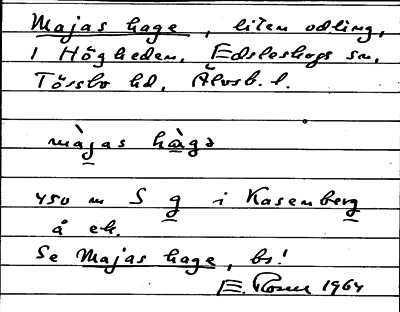 Majas hage, liten odling,
i Högheden, Edsleskogs sn,
Tössbo hd, Älvsb. l.
màjas hàgə
450 m S g i Kasenberg
å ek.
Se Majas hage, bs!
E. Rosen 1964